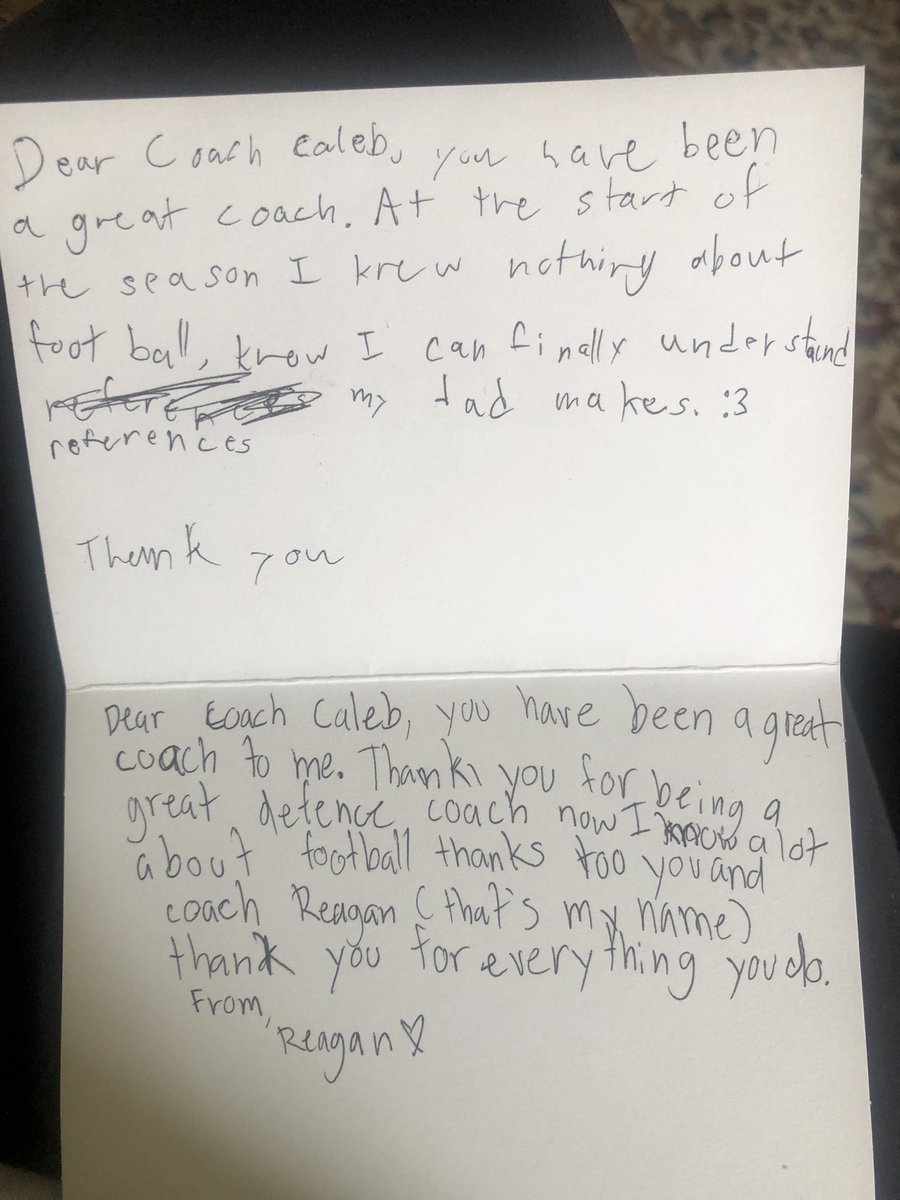 Dear Coach Caleb, you have been
a great coach. At the start of
the season I knew nothing about
foot ball, know I can finally understand
references my dad makes. :3
references
Thank you
Dear Coach Caleb, you have been a great
coach to me. Thank you for being a
great defence coach now I know a lot
about football thanks too you and
coach Reagan (that's my name)
thank you for everything you do.
From,
Reagan♡